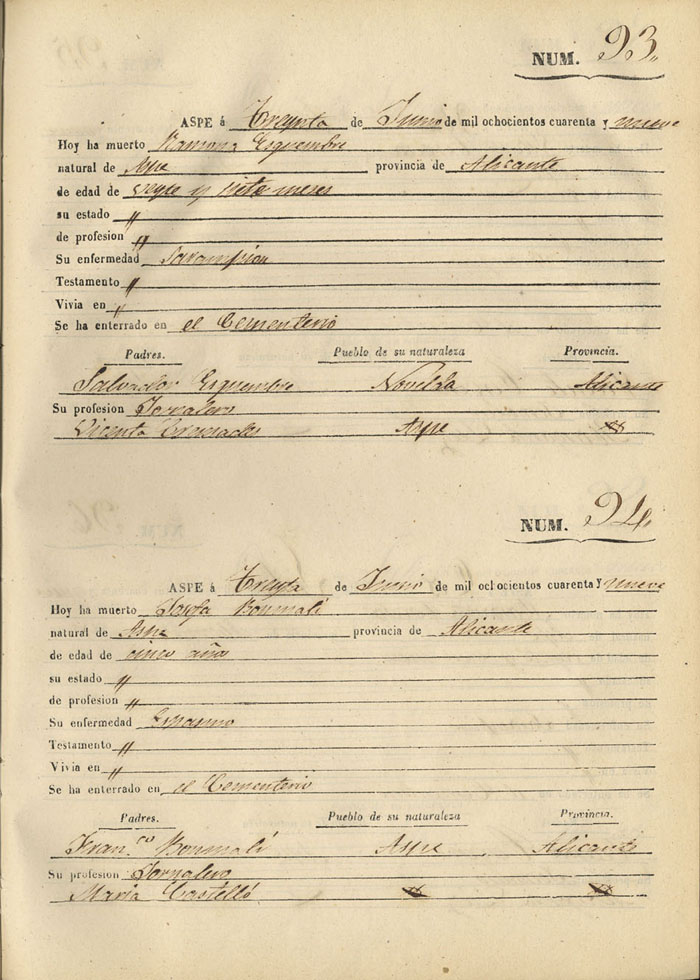 NUM. 93.
ASPE á Treynta de Junio de mil ochocientos cuarenta y nueve
Hoy ha muerto Ramona Esquembre
natural de Aspe provincia de Alicante
de edad de veyte y siete meses
su estado 〃
de profesion 〃
Su enfermedad Sarampion
Testamento 〃
Vivia en 〃
Se ha enterrado en el Cementerio
Padres. Pueblo de su naturaleza Provincia.
Salvador Esquembre Novelda Alicante
Su profesion Jornalero
Vicenta Aspe
NUM. 94.
ASPE á Treyta de Junio de mil ochocientos cuarenta y nueve
Hoy ha muerto Josefa Bonmati
natural de Aspe provincia de Alicante
de edad de cinco años
su estado 〃
de profesion 〃
Su enfermedad
Testamento 〃
Vivia en 〃
Se ha enterrado en el Cementerio
Padres. Pueblo de su naturaleza Provincia.
Fran.co Bonmati Aspe Alicante
Su profesion Jornalero
Maria Castelló